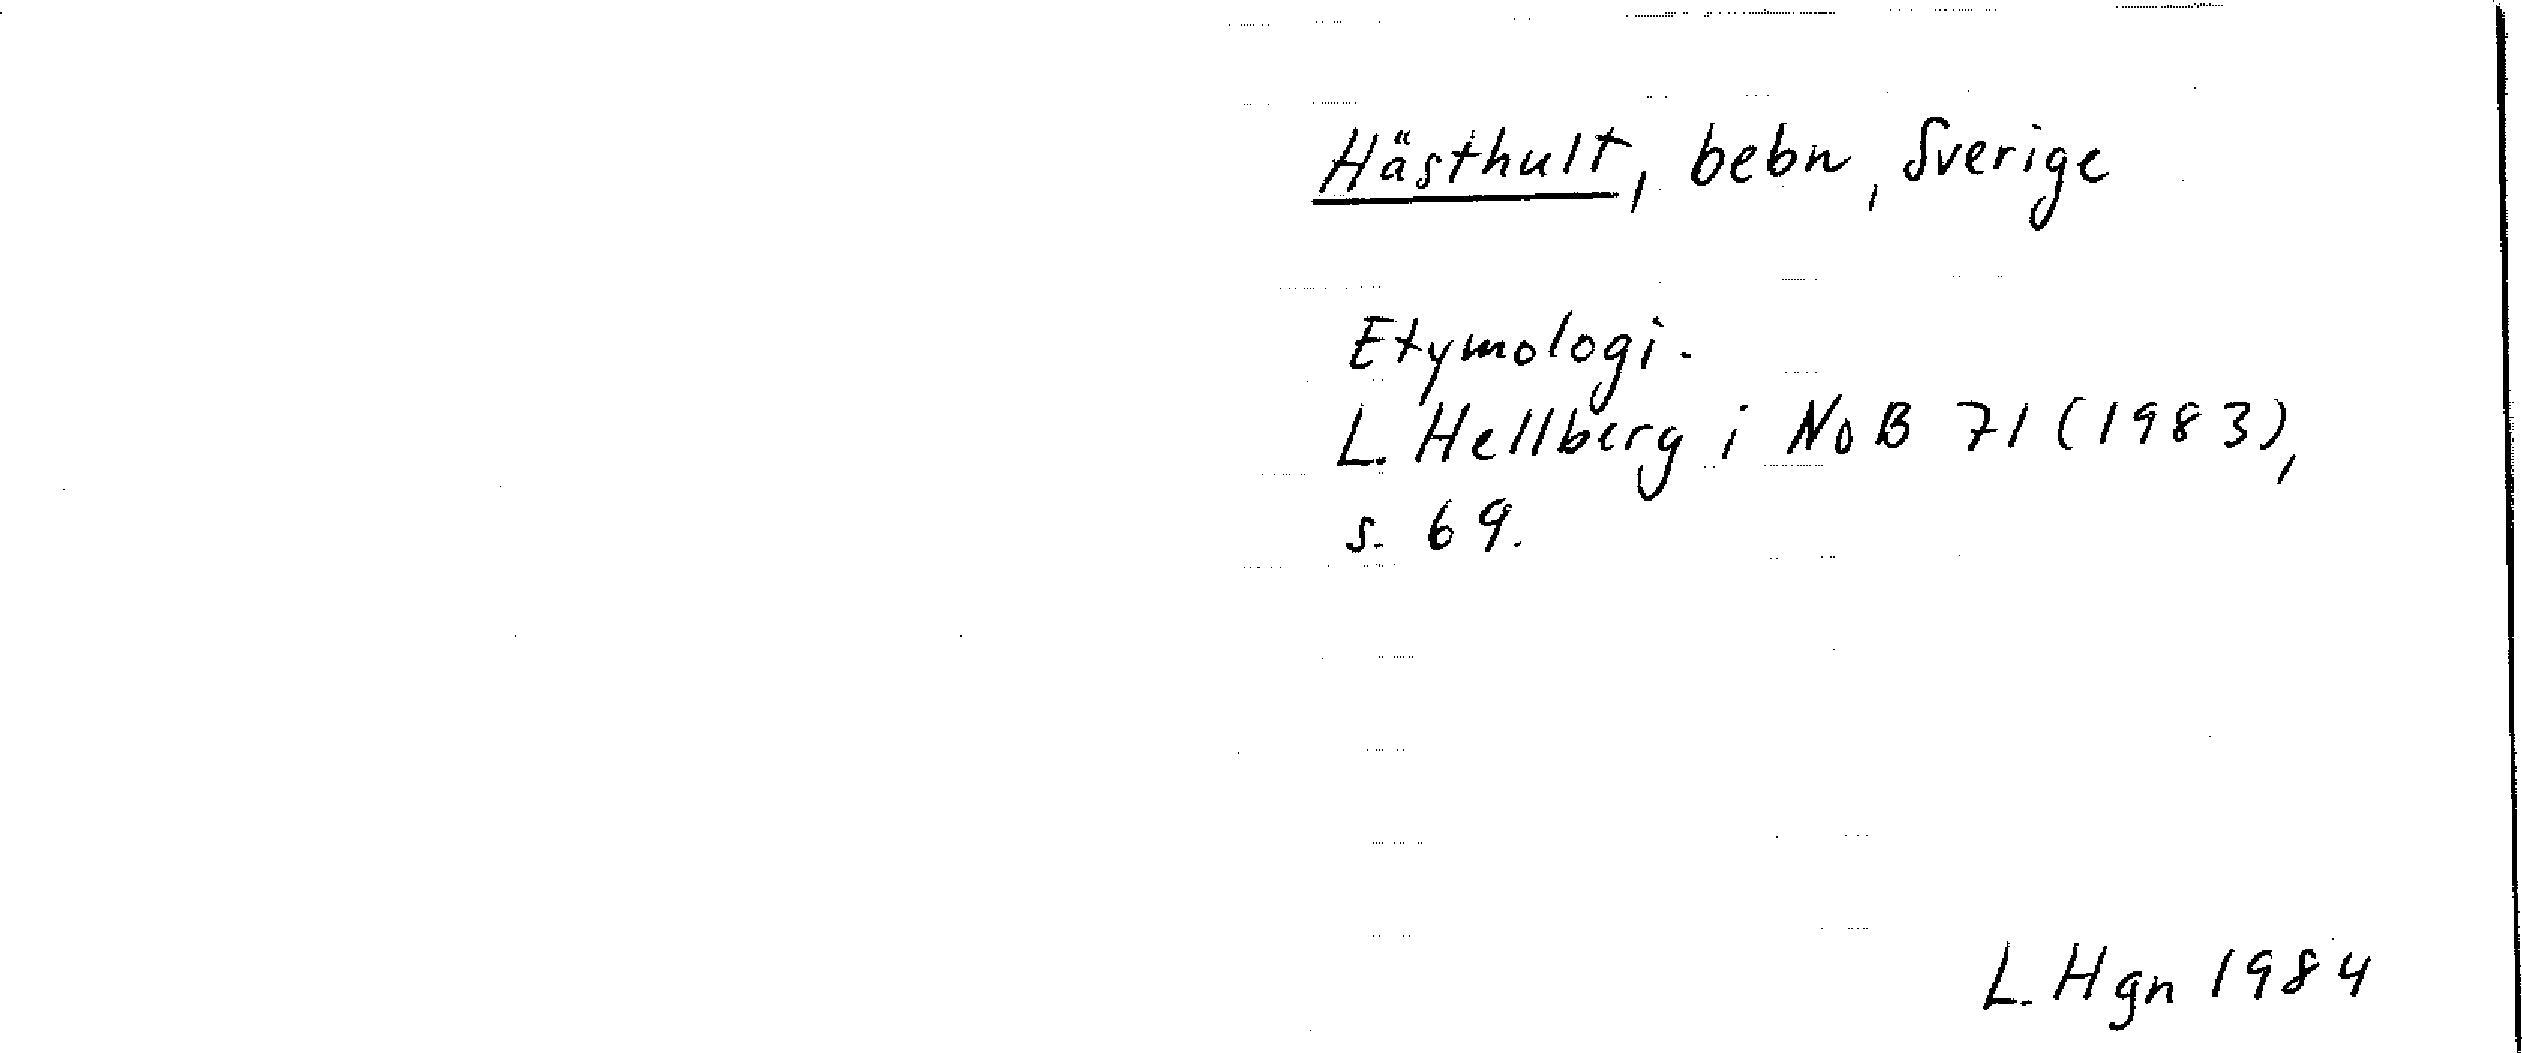 Hästhult, bebn, Sverige
Etymologi.
L. Hellberg i NoB 71 (1983),
s. 69.
L. Hgn 1984